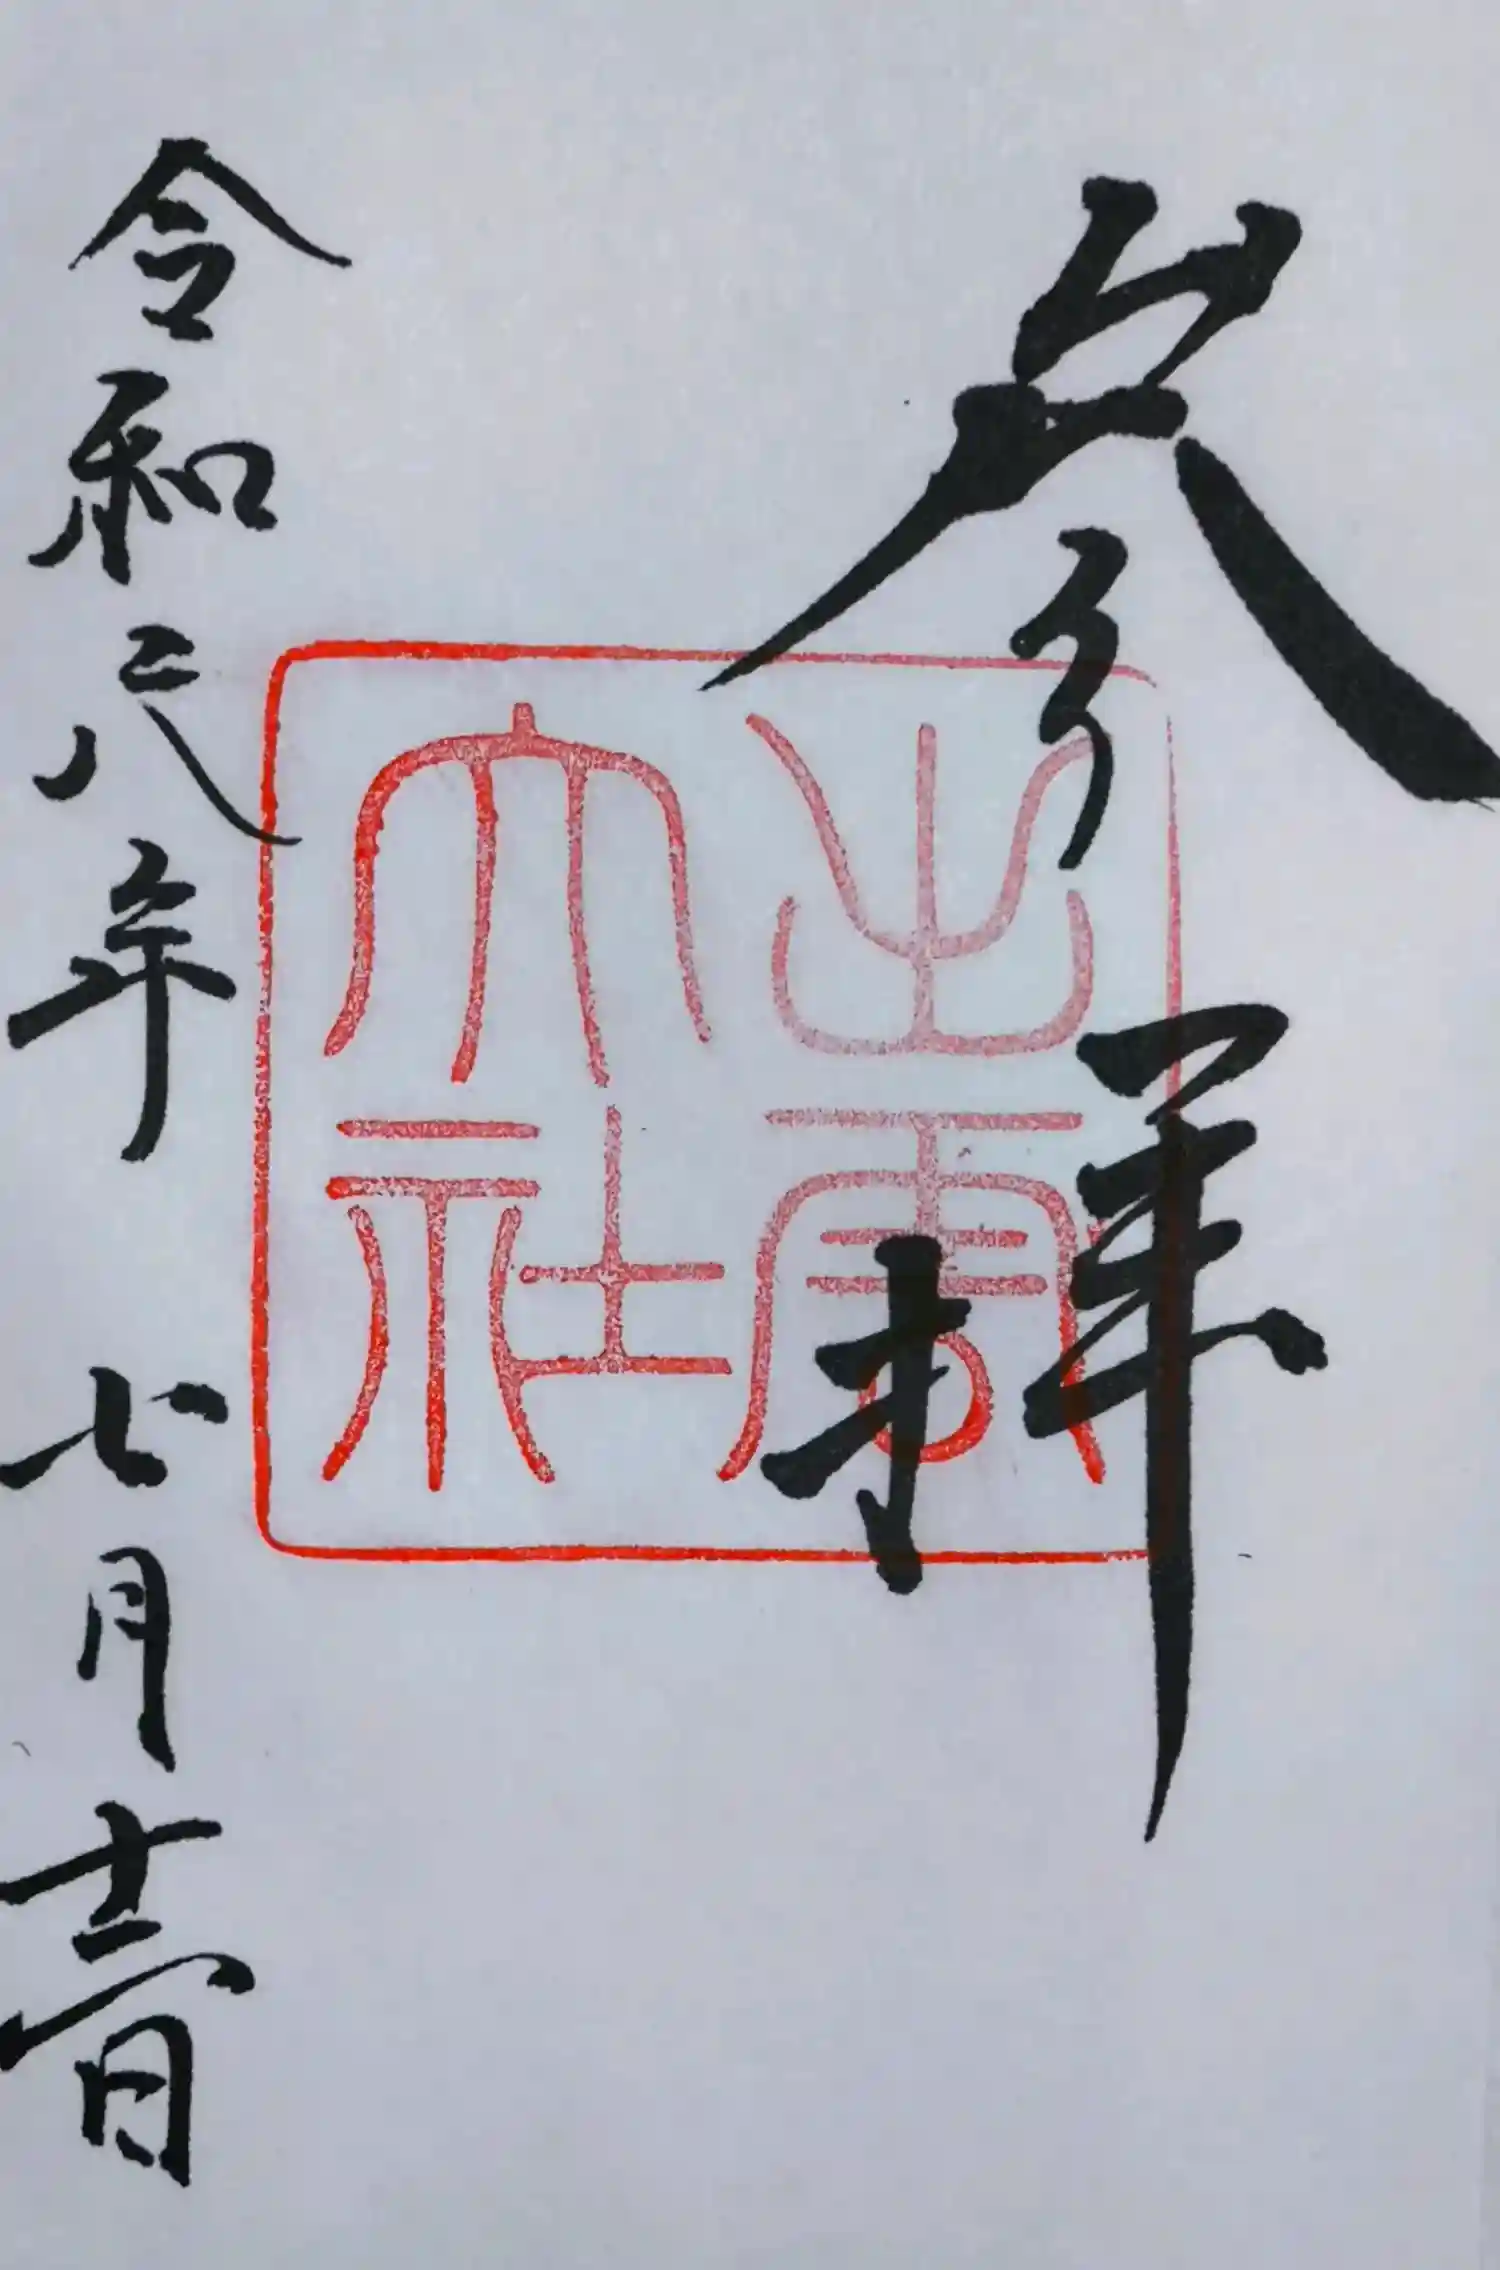 参拝
出雲
大社
令和元年七月十二日